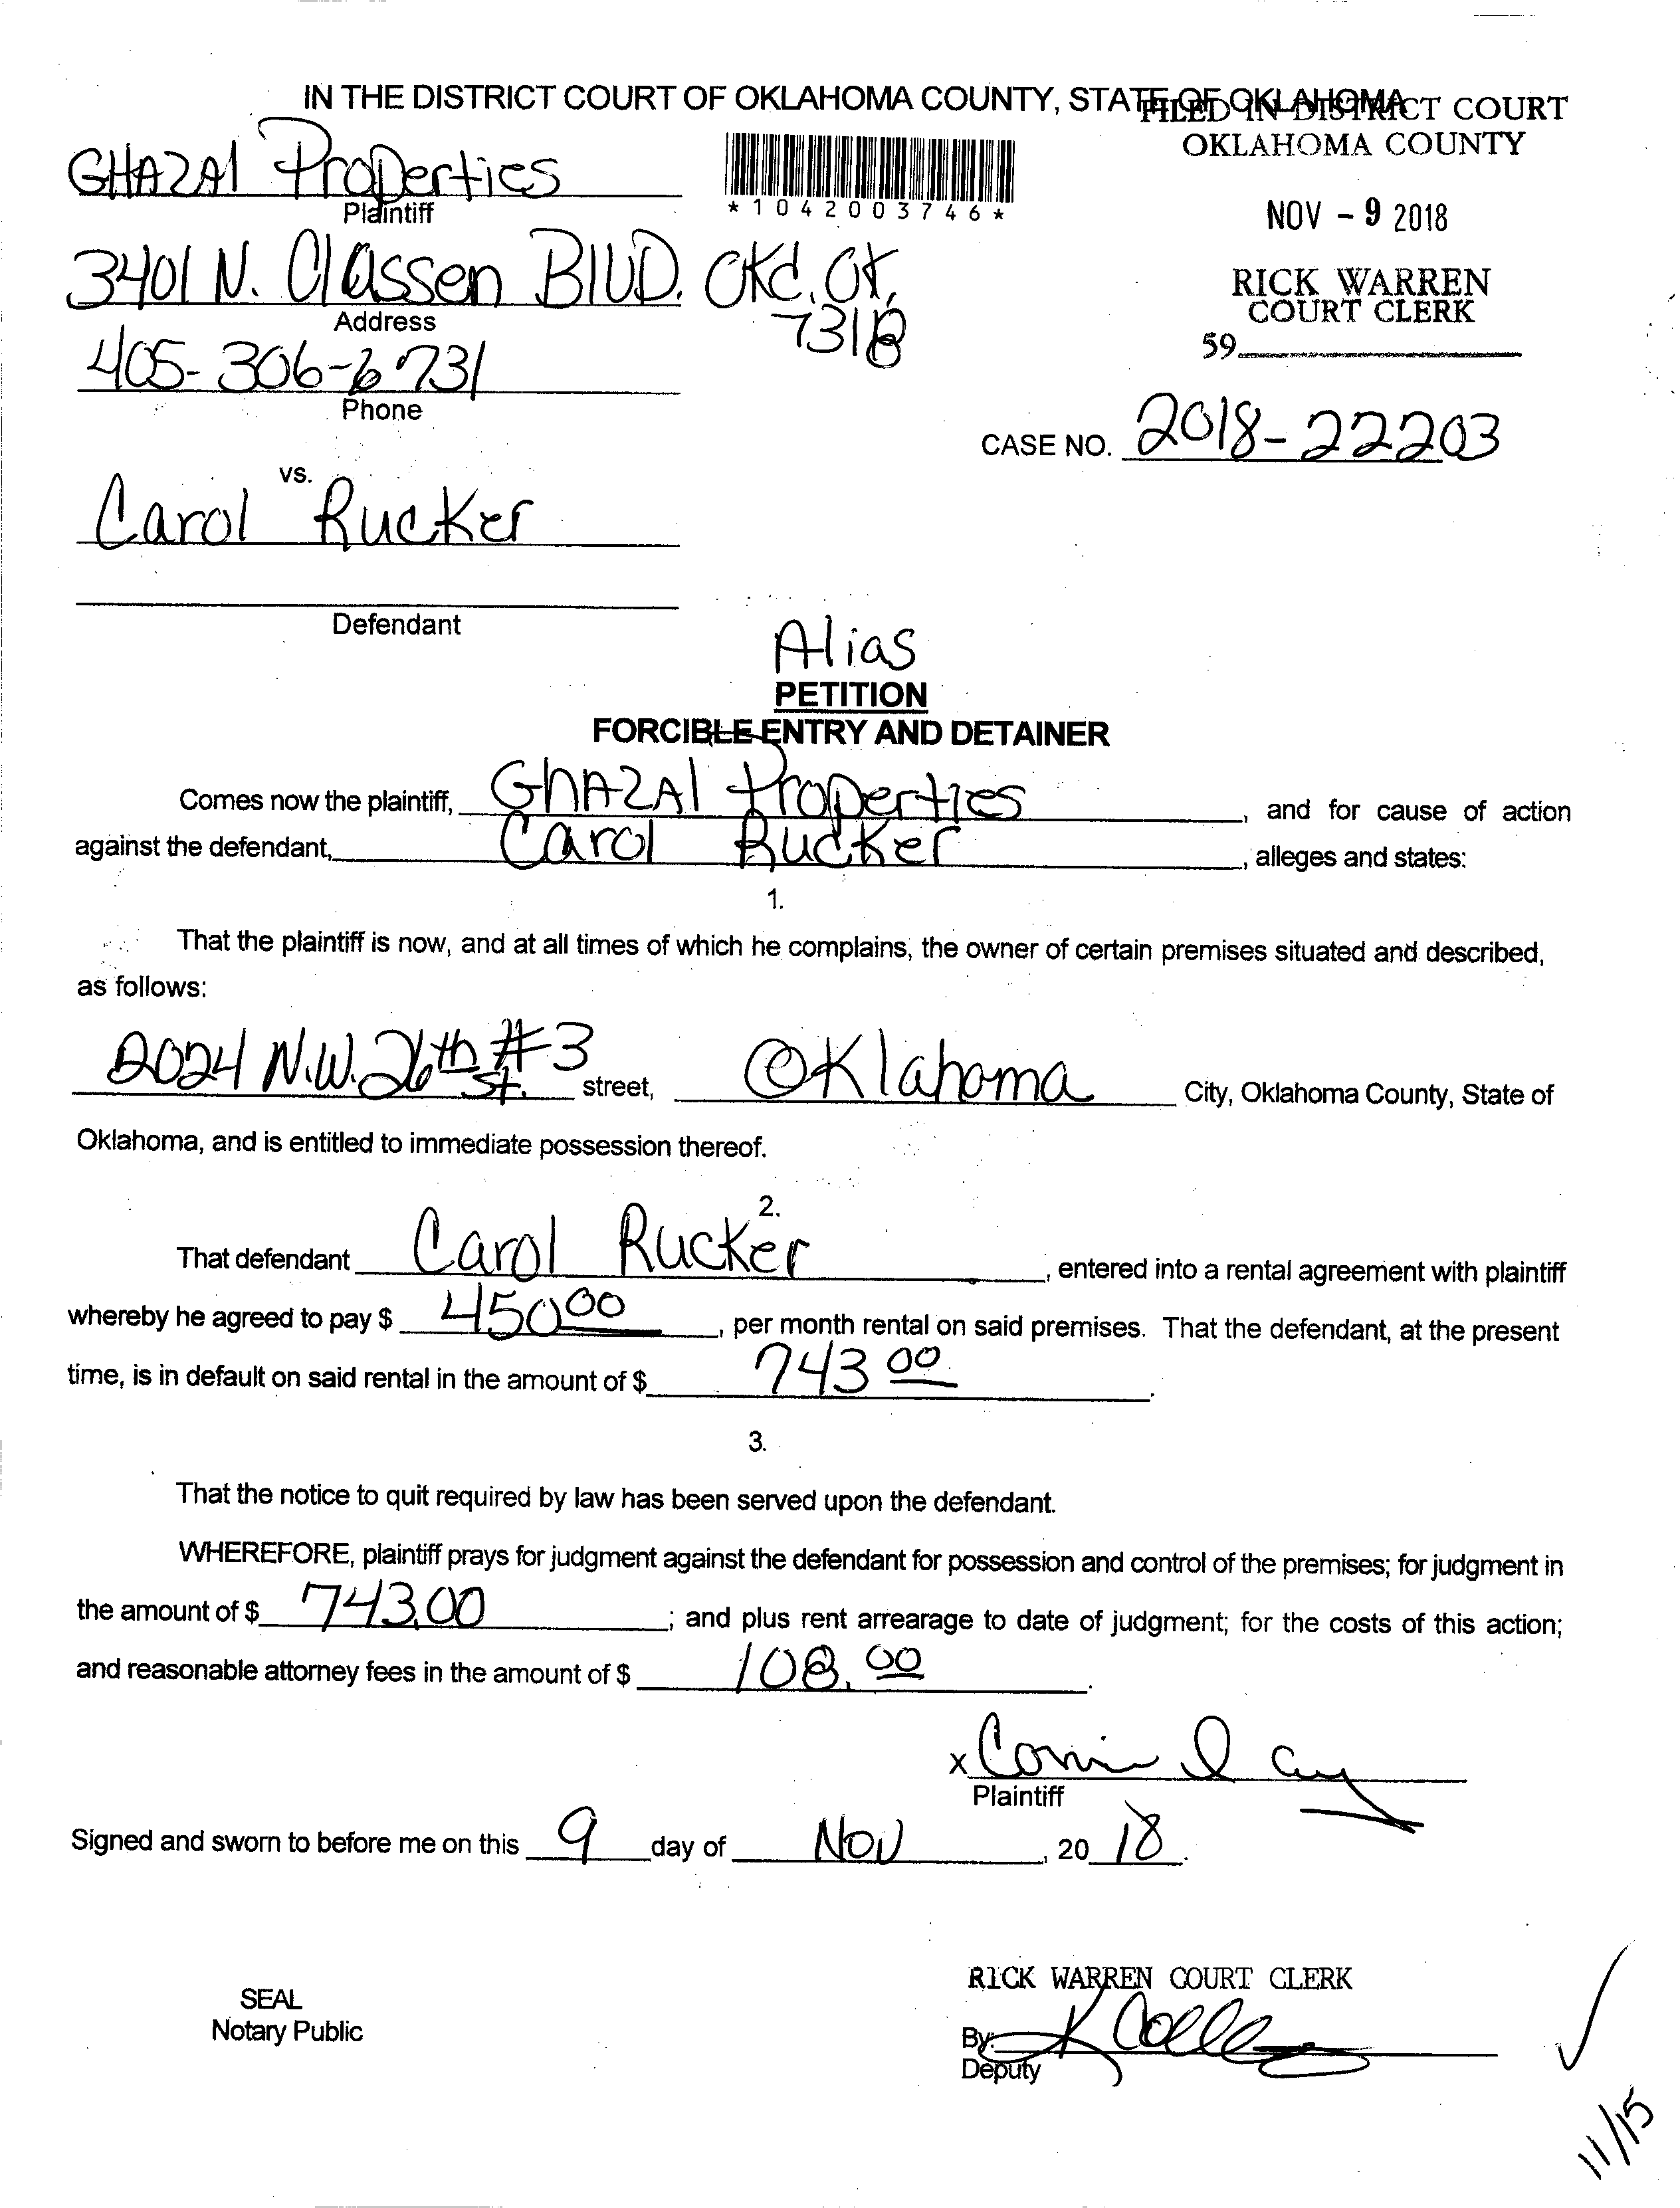 IN THE DISTRICT COURT OF OKLAHOMA COUNTY, STATE OF OKLAHOMA
FILED IN DISTRICT COURT
OKLAHOMA COUNTY
GHAZAl Properties
Plaintiff
*1042003746*
NOV - 9 2018
3401 N. Classen BlVD. OKC. OK.
Address
RICK WARREN
COURT CLERK
59
405-306-6731
Phone
CASE NO. 2018-22203
vs.
Carol Rucker
Defendant
Alias
PETITION
FORCIBLE ENTRY AND DETAINER
Comes now the plaintiff, GhAZAl Properties, and for cause of action
against the defendant, Carol Rucker, alleges and states:
1.
That the plaintiff is now, and at all times of which he complains, the owner of certain premises situated and described,
as follows:
2024 N.W. 26th St. #3 street, Oklahoma City, Oklahoma County, State of
Oklahoma, and is entitled to immediate possession thereof.
2.
That defendant Carol Rucker, entered into a rental agreement with plaintiff
whereby he agreed to pay $ 450.00, per month rental on said premises. That the defendant, at the present
time, is in default on said rental in the amount of $ 743 00.
3.
That the notice to quit required by law has been served upon the defendant.
WHEREFORE, plaintiff prays for judgment against the defendant for possession and control of the premises; for judgment in
the amount of $ 743.00; and plus rent arrearage to date of judgment; for the costs of this action;
and reasonable attorney fees in the amount of $ 108.00.
x
Plaintiff
Signed and sworn to before me on this 9 day of Nov, 20 18.
SEAL
Notary Public
RICK WARREN COURT CLERK
By:
Deputy
11/15